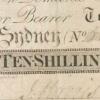 or Bearer T
Sydney (No
TEN SHILLIN